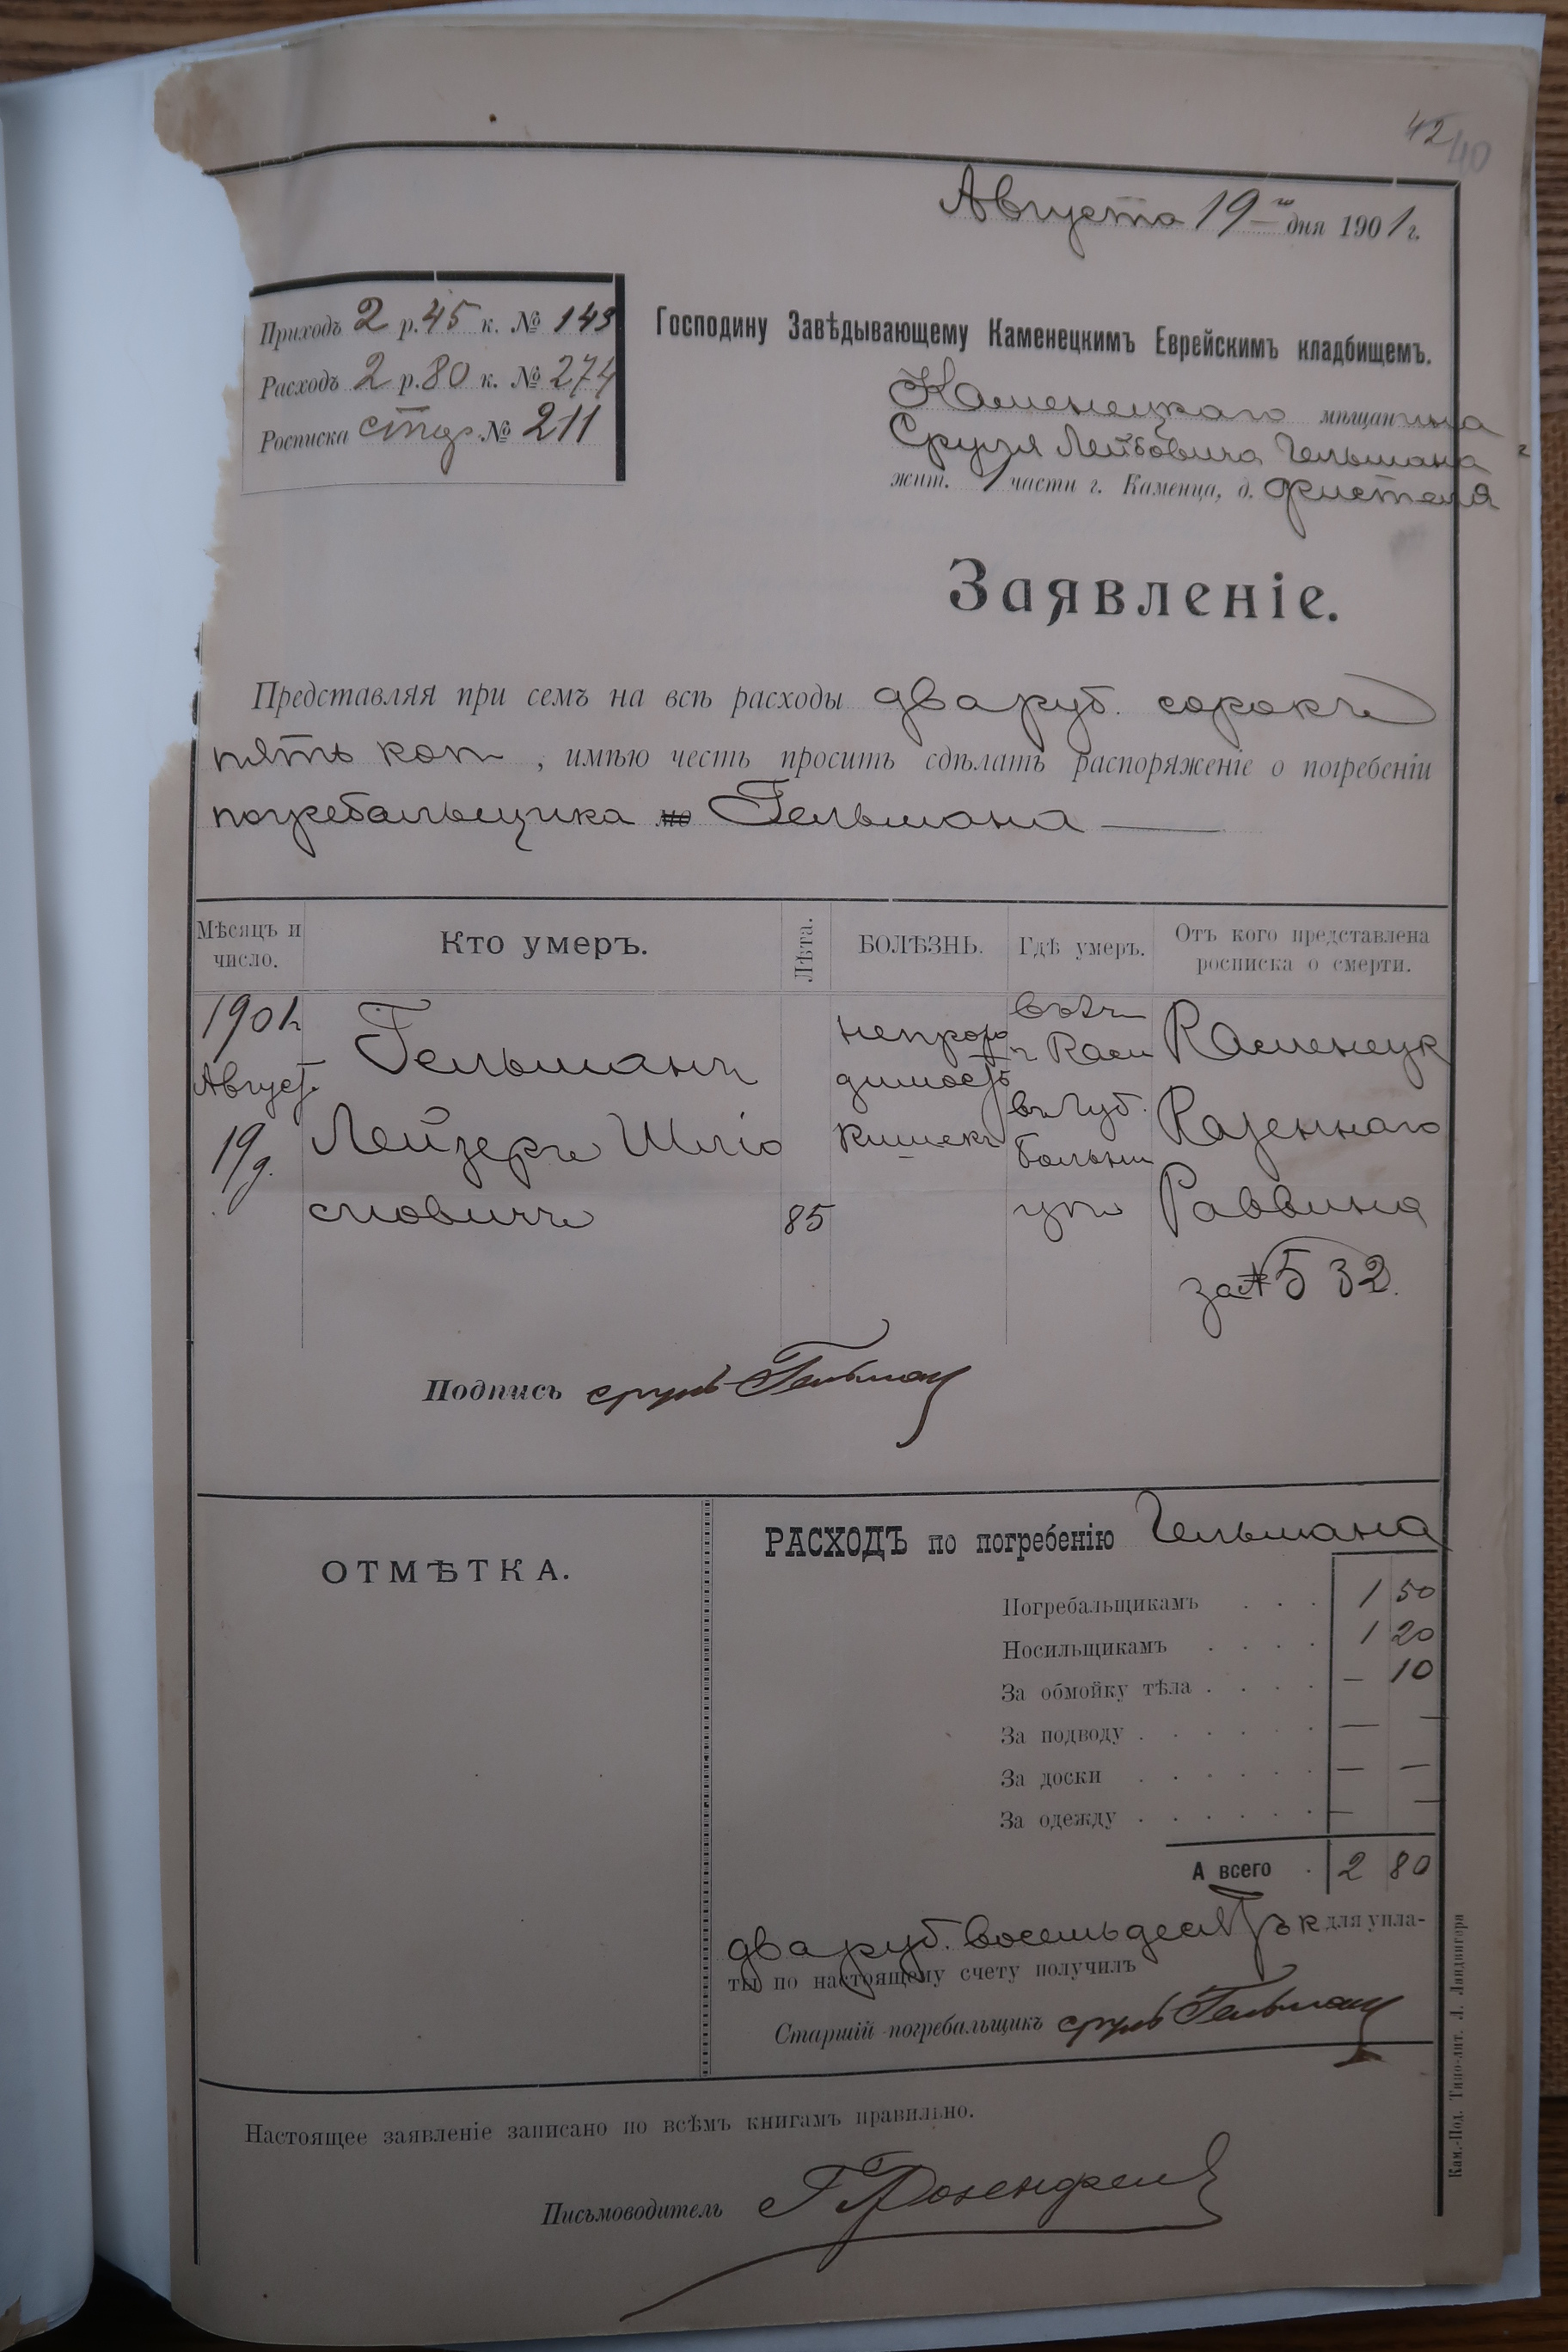 42
40
Августа 19го дня 1901 г.
Приходъ 2 р. 45 к. № 143
Расходъ 2 р. 80 к. № 274
Росписка № 211
Господину Завѣдывающему Каменецкимъ Еврейскимъ кладбищемъ.
Каменецкаго мѣщанина
Сруля Лейбовича Гельмана
жит. 1 части г. Каменца, д. Фистеля
Заявленіе.
Представляя при семъ на всѣ расходы два руб. сорокъ
пять коп, имѣю честь просить сдѣлать распоряженіе о погребеніи
погребальщика Гельмана
Мѣсяцъ и число.
Кто умеръ.
Лѣта.
БОЛѢЗНЬ.
Гдѣ умеръ.
Отъ кого представлена росписка о смерти.
1901
Август
19 д.
Гельманъ
Лейзеръ Шліо
мовичъ
85
непрохо
димость
кишекъ
въ
г Кам
въ Губ.
больни
цѣ
Каменецк
Казеннаго
Раввина
за № 532.
Подпись сруль Гельман
ОТМѢТКА.
РАСХОДЪ по погребенію Гельмана
Погребальщикамъ . . . 1 50
Носильщикамъ . . . . 1 20
За обмойку тѣла . . . . — 10
За подводу . . . . . . — —
За доски . . . . . . — —
За одежду . . . . . . — —
А всего . 2 80
два руб. восемьдесятъ к для упла-
ты по настоящему счету получилъ
Старшій погребальщикъ сруль Гельман
Настоящее заявленіе записано по всѣмъ книгамъ правильно.
Письмоводитель Г Розенфел
Кам.-Под. Типо-лит. Л. Ландвигера